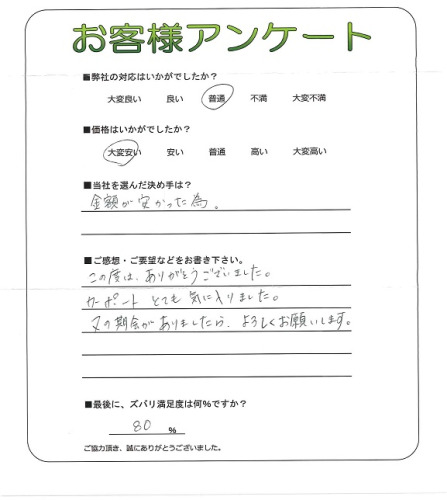 お客様アンケート
■弊社の対応はいかがでしたか?
大変良い 良い 普通 不満 大変不満
■価格はいかがでしたか?
大変安い 安い 普通 高い 大変高い
■当社を選んだ決め手は?
金額が安かった為。
■ご感想・ご要望などをお書き下さい。
この度は、ありがとうございました。
カーポート とても気に入りました。
又の期会がありましたら、よろしくお願いします。
■最後に、ズバリ満足度は何%ですか?
80 %
ご協力頂き、誠にありがとうございました。